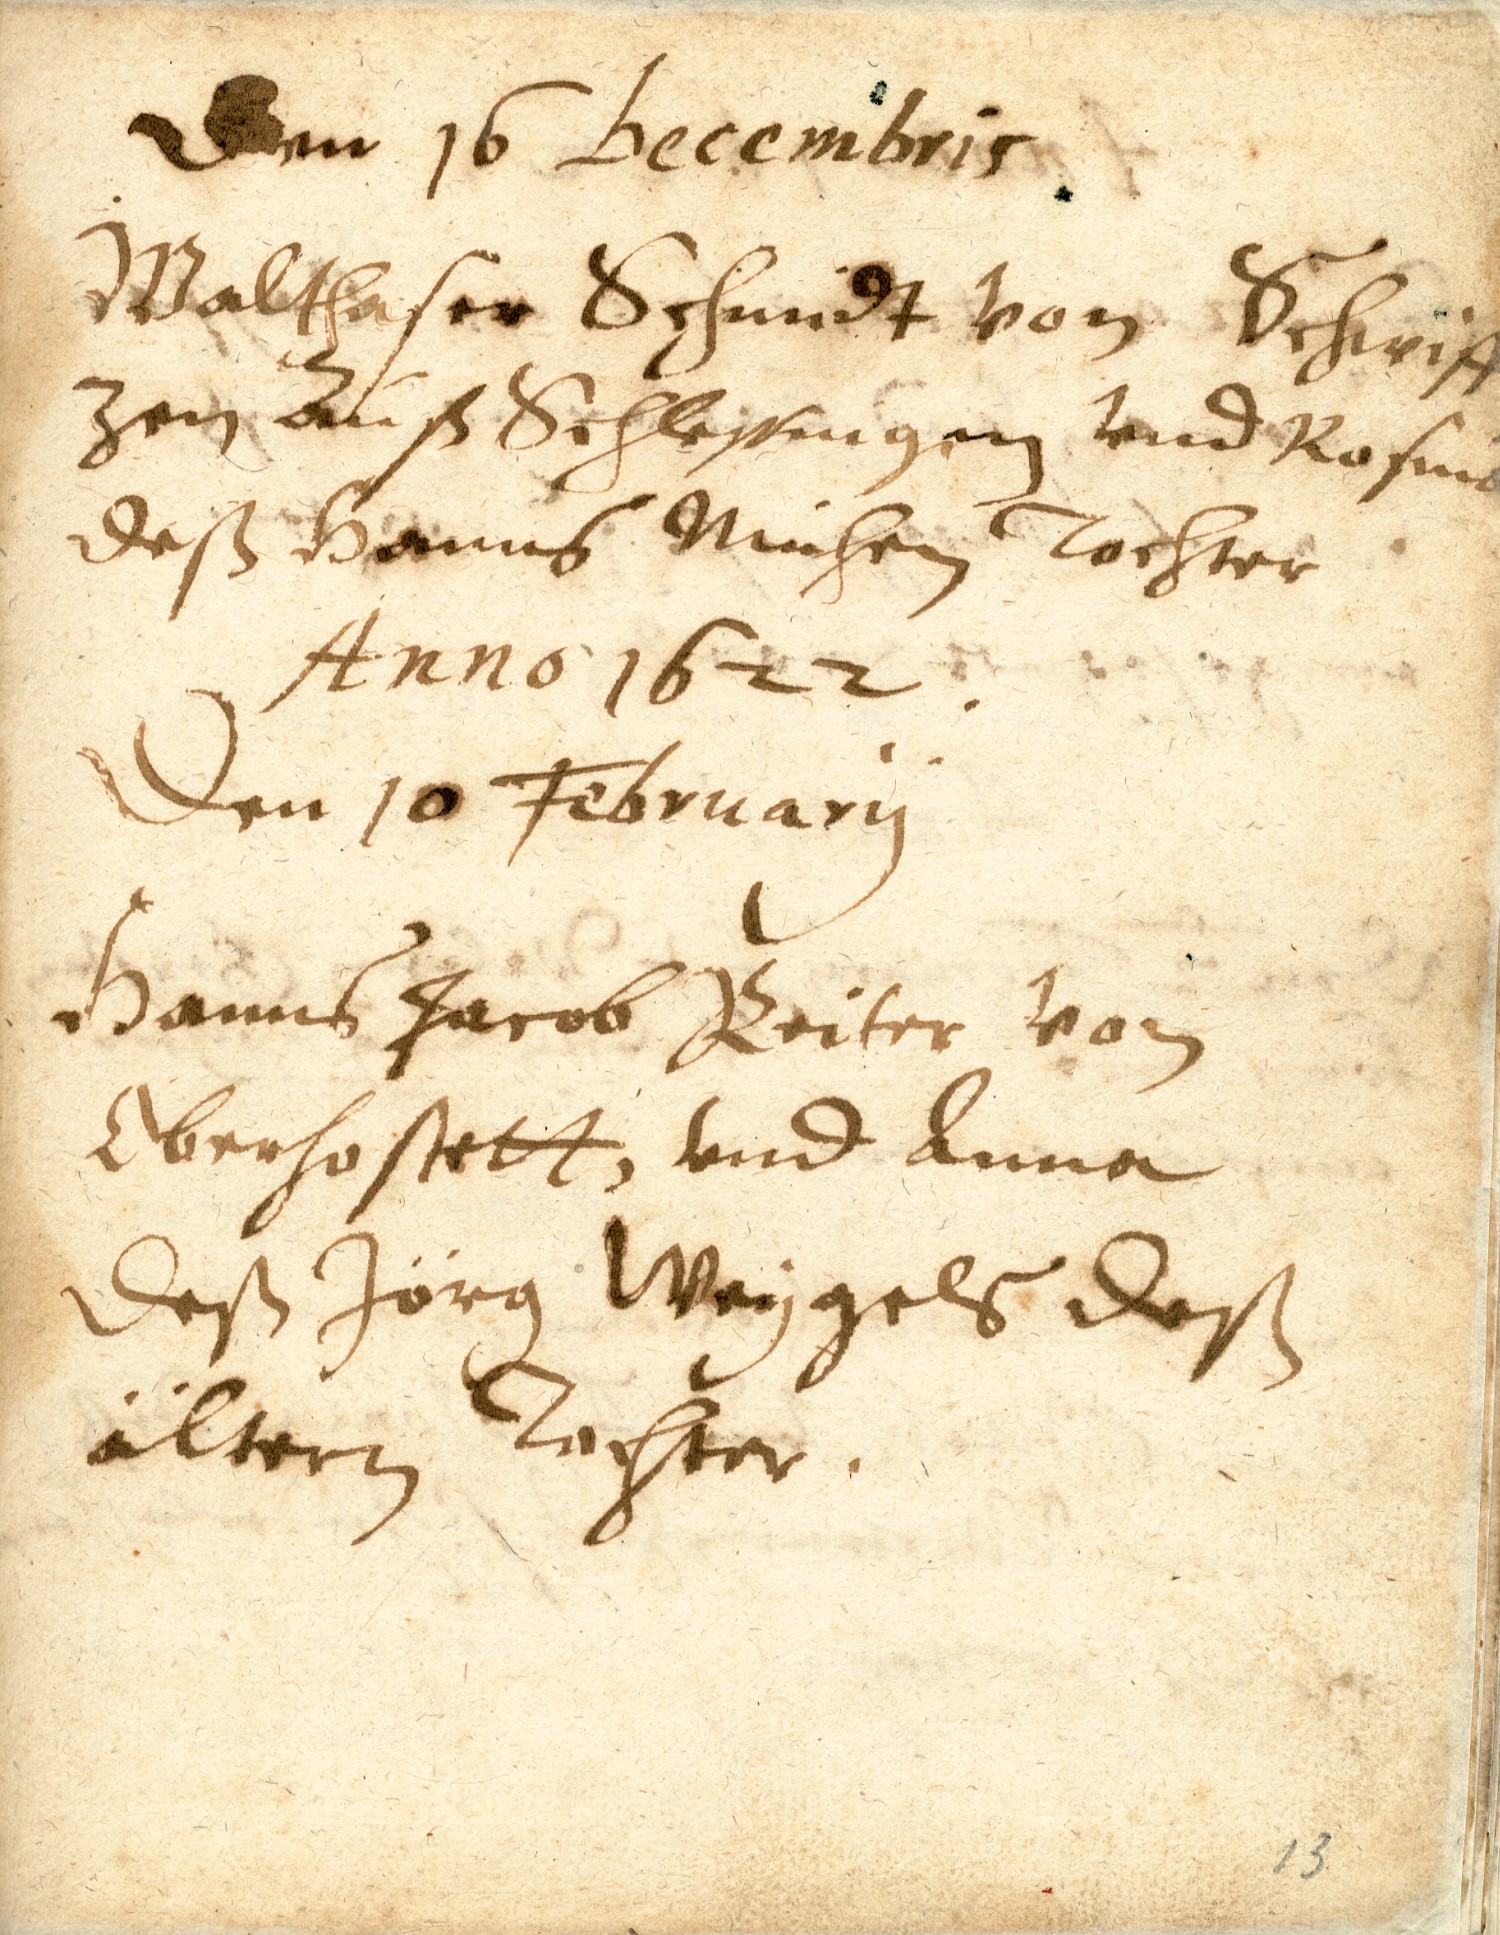 Den 16 Decembris
Walthaser Schmidt von
zen auß Schlessingen vnd Rosina
deß Hanns Tochter
Anno 1622.
Den 10 Februarij
Hanns Jacob Reiter von
Oberhostett, vnd Anna
deß Jörg Weygels deß
ältern Tochter.
13